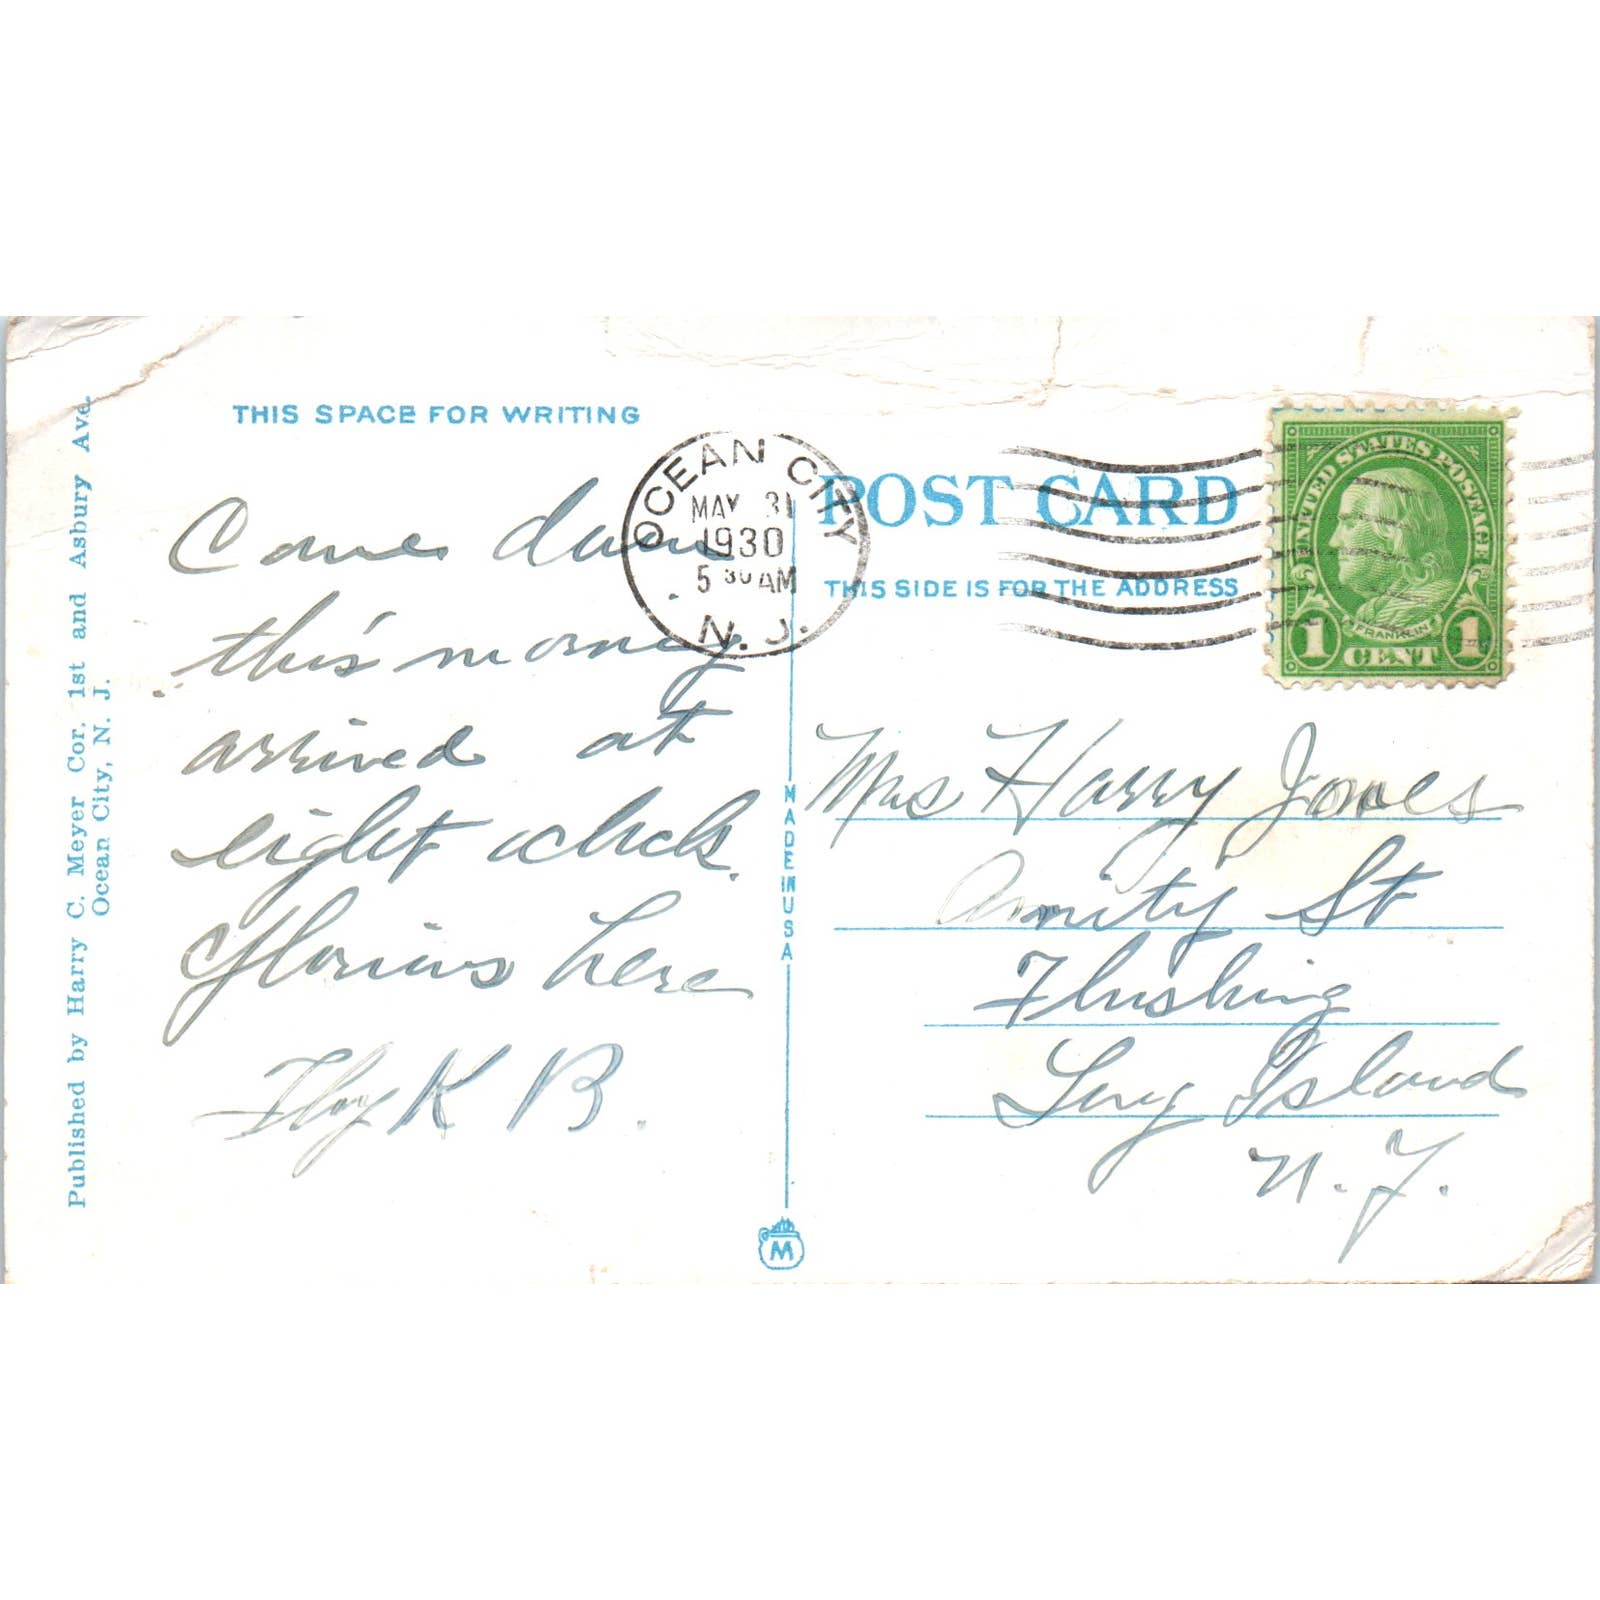 THIS SPACE FOR WRITING
Came down
this morning
arrived at
eight oclock.
Glorious here
K B.
Published by Harry C. Meyer Cor. 1st and Asbury Ave.
Ocean City, N. J.
OCEAN CITY
MAY 31
1930
5 30 AM
N. J.
POST CARD
THIS SIDE IS FOR THE ADDRESS
UNITED STATES POSTAGE
FRANKLIN
1 CENT 1
MADE IN USA
Mrs Harry Jones
Amity St
Flushing
Long Island
N. Y.
M